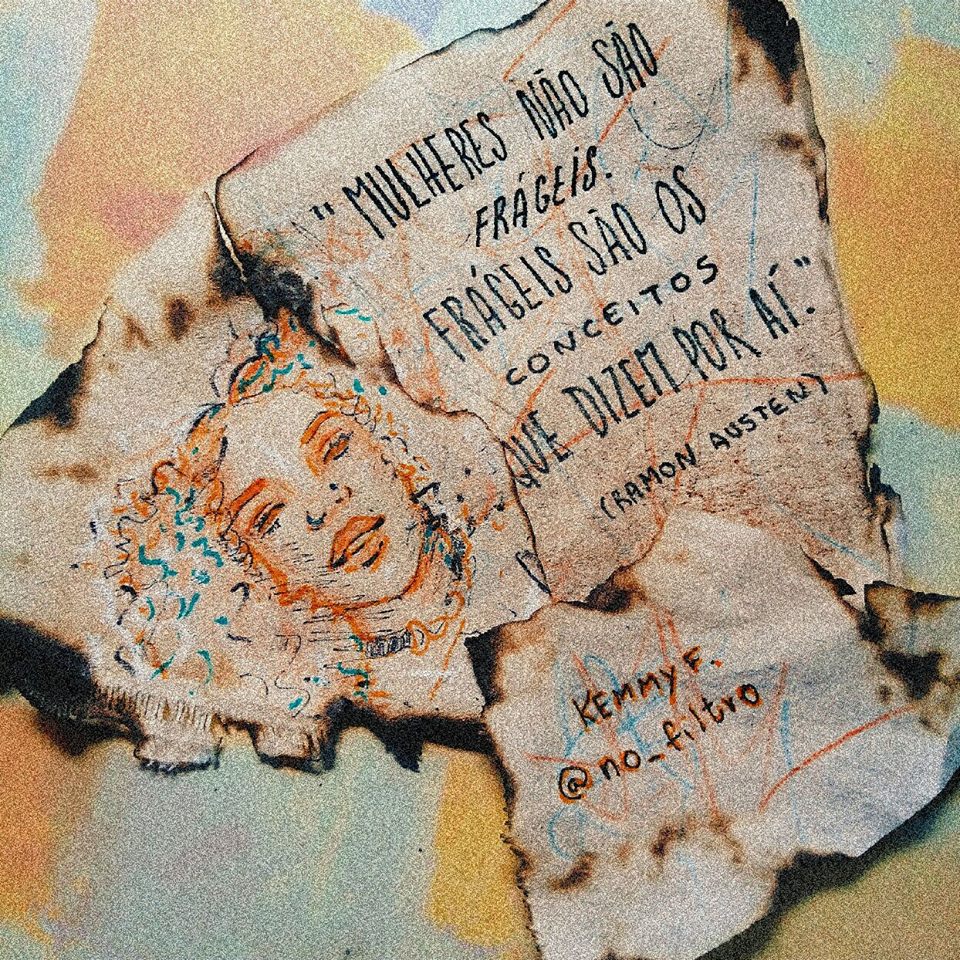 "MULHERES NÃO SÃO
FRÁGEIS.
FRÁGEIS SÃO OS
CONCEITOS
QUE DIZEM POR AÍ."
(RAMON AUSTEN)
KEMMY F.
@no_filtro